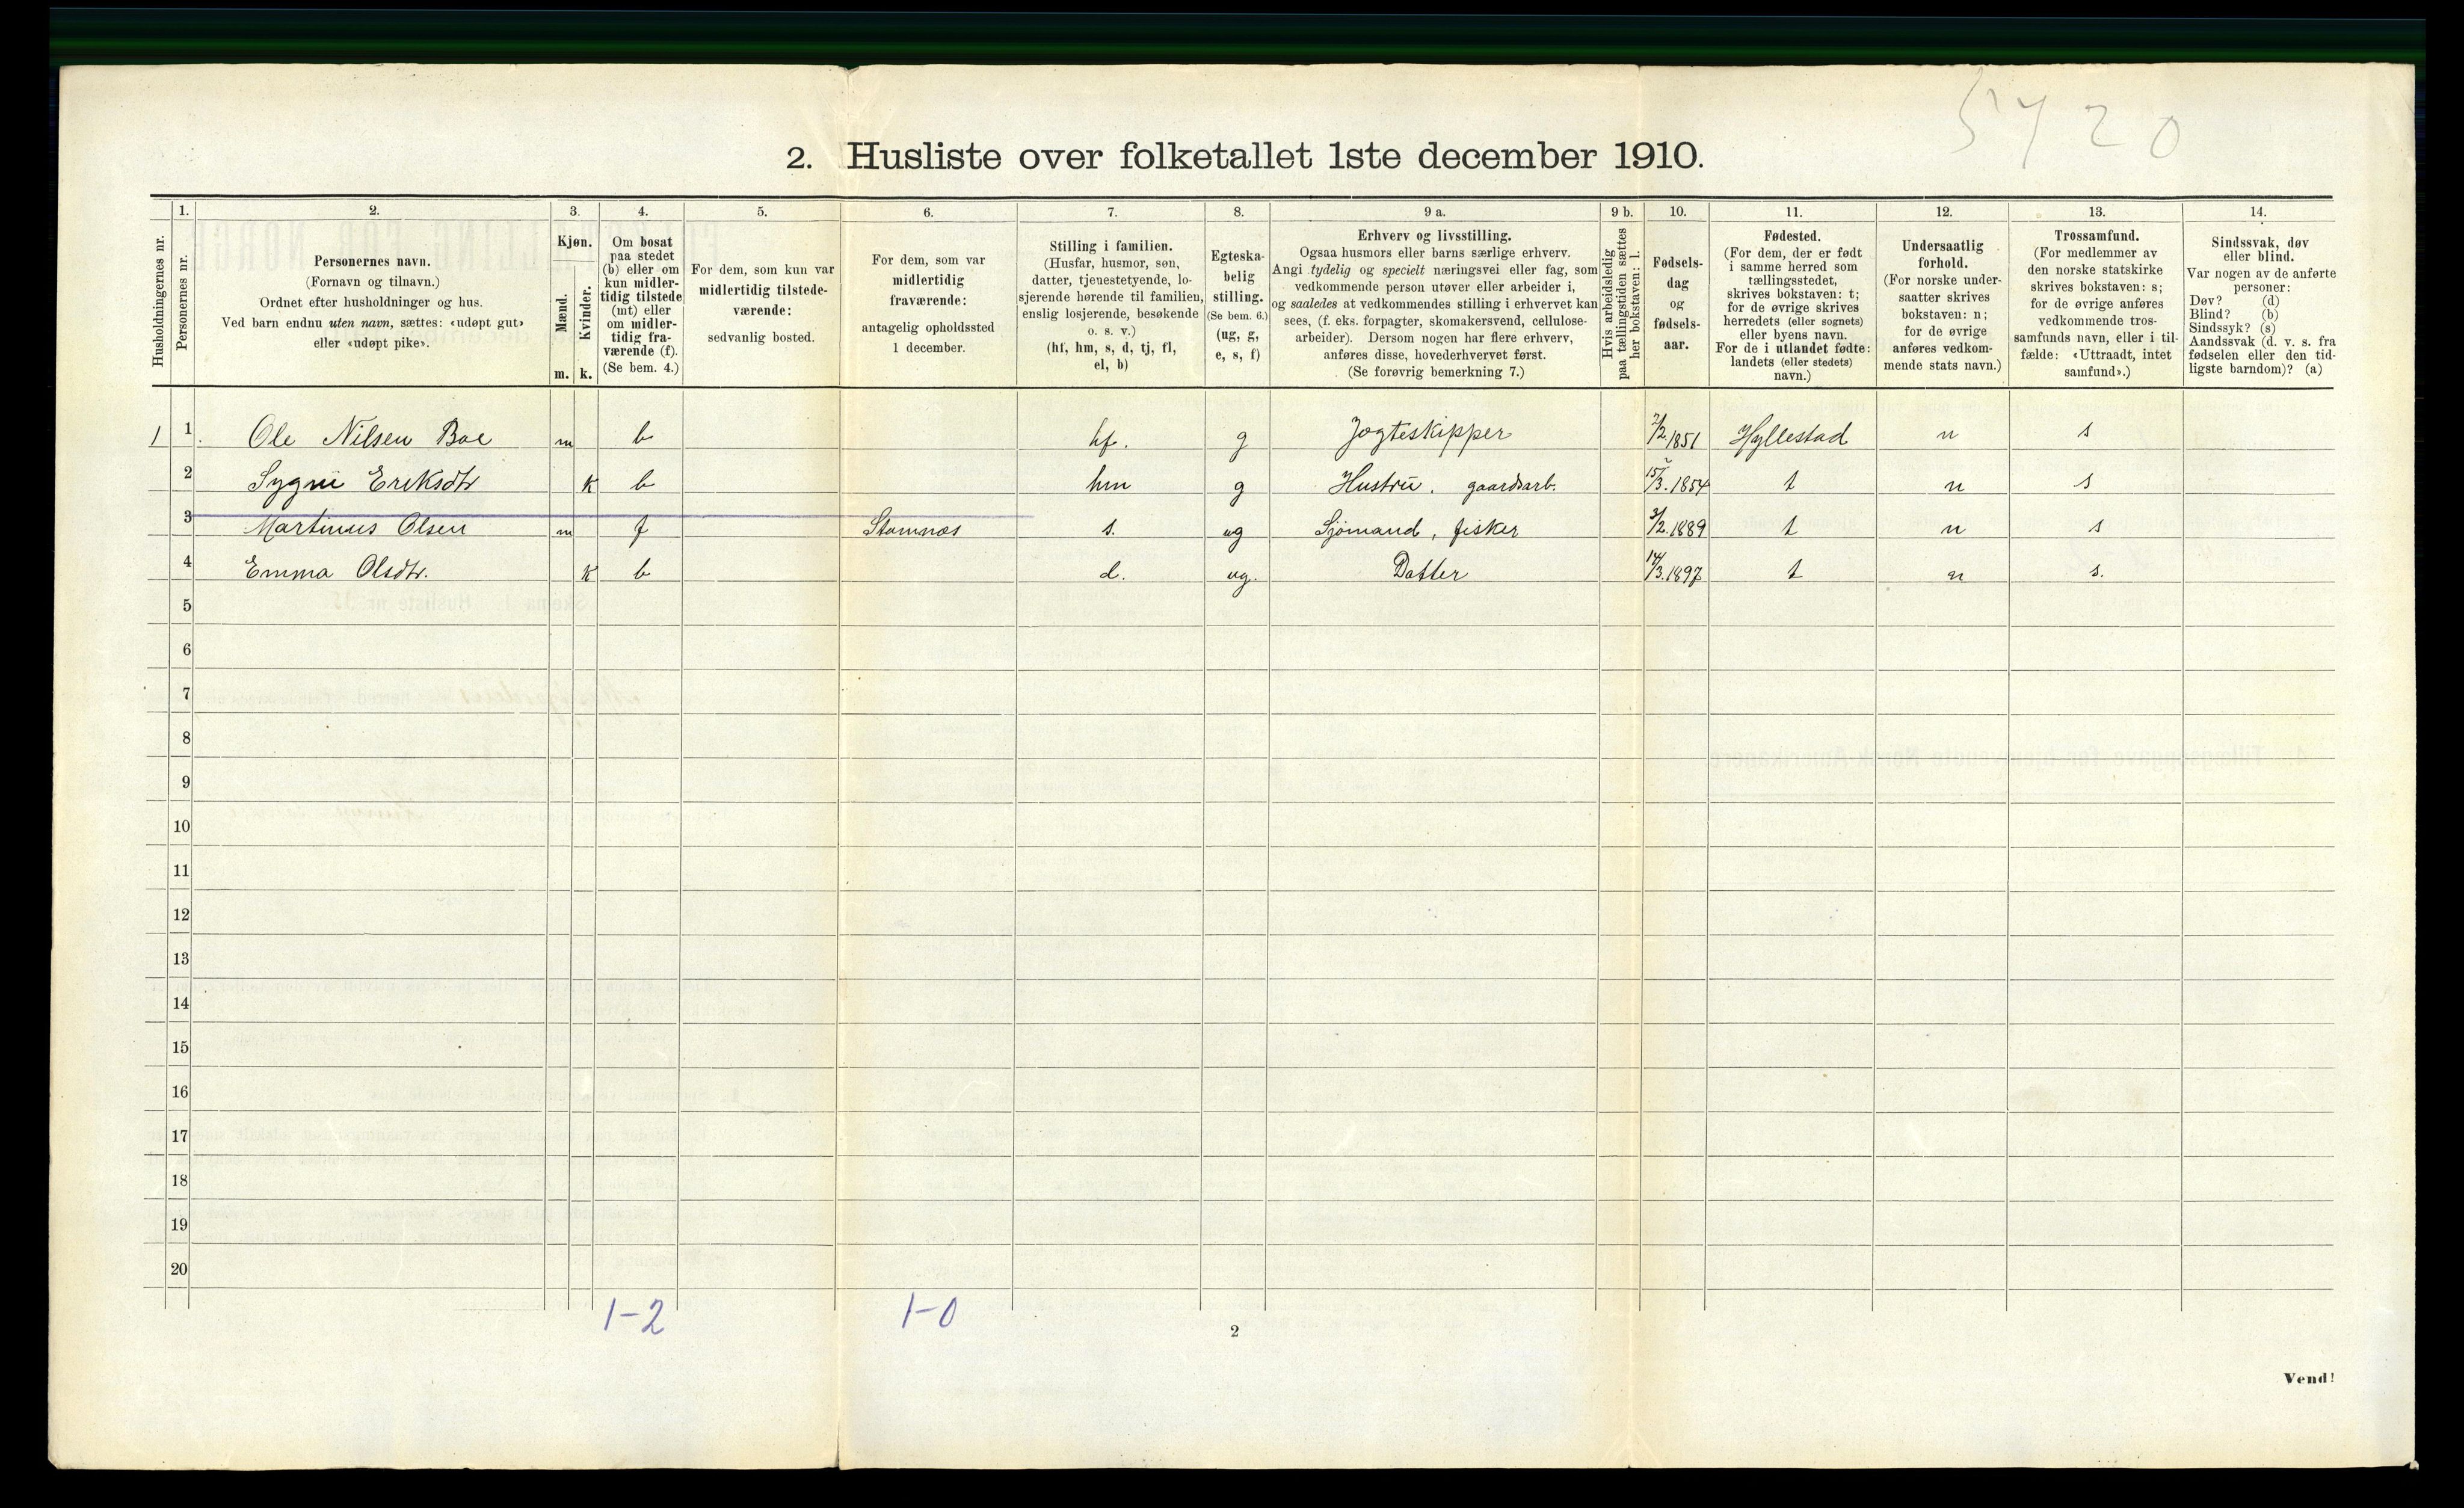 5720
2. Husliste over folketallet 1ste december 1910.
Husholdningernes nr.
1.
Personernes nr.
2.
Personernes navn.
(Fornavn og tilnavn.)
Ordnet efter husholdninger og hus.
Ved barn endnu uten navn, sættes: «udøpt gut»
eller «udøpt pike».
3.
Kjøn.
Mænd.
Kvinder.
m. k.
4.
Om bosat
paa stedet
(b) eller om
kun midler-
tidig tilstede
(mt) eller
om midler-
tidig fra-
værende (f).
(Se bem. 4.)
5.
For dem, som kun var
midlertidig tilstede-
værende:
sedvanlig bosted.
6.
For dem, som var
midlertidig
fraværende:
antagelig opholdssted
1 december.
7.
Stilling i familien.
(Husfar, husmor, søn,
datter, tjenestetyende, lo-
sjerende hørende til familien,
enslig losjerende, besøkende
o. s. v.)
(hf, hm, s, d, tj, fl,
el, b)
8.
Egteska-
belig
stilling.
(Se bem. 6.)
(ug, g,
e, s, f)
9 a.
Erhverv og livsstilling.
Ogsaa husmors eller barns særlige erhverv.
Angi tydelig og specielt næringsvei eller fag, som
vedkommende person utøver eller arbeider i,
og saaledes at vedkommendes stilling i erhvervet kan
sees, (f. eks. forpagter, skomakersvend, cellulose-
arbeider). Dersom nogen har flere erhverv,
anføres disse, hovederhvervet først.
(Se forøvrig bemerkning 7.)
9 b.
Hvis arbeidsledig
paa tællingstiden sættes
her bokstaven: l.
10.
Fødsels-
dag
og
fødsels-
aar.
11.
Fødested.
(For dem, der er født
i samme herred som
tællingsstedet,
skrives bokstaven: t;
for de øvrige skrives
herredets (eller sognets)
eller byens navn.
For de i utlandet fødte:
landets (eller stedets)
navn.)
12.
Undersaatlig
forhold.
(For norske under-
saatter skrives
bokstaven: n;
for de øvrige
anføres vedkom-
mende stats navn.)
13.
Trossamfund.
(For medlemmer av
den norske statskirke
skrives bokstaven: s;
for de øvrige anføres
vedkommende tros-
samfunds navn, eller i til-
fælde: «Uttraadt, intet
samfund».)
14.
Sindssvak, døv
eller blind.
Var nogen av de anførte
personer:
Døv? (d)
Blind? (b)
Sindssyk? (s)
Aandssvak (d. v. s. fra
fødselen eller den tid-
ligste barndom)? (a)
1 1 Ole Nilsen Boe m b hf. g Jagteskipper 7/2 1851 Hyllestad n s
2 Sygni Eriksdtr k b hm g Hustru. gaardsarb. 15/3. 1854 t n s
3 Martinus Olsen m f Stamnæs s. ug Sjømand, fisker 3/2. 1889 t n s
4 Emma Olsdtr. k b d. ug. Datter 14/3. 1897 t n s.
5
6
7
8
9
10
11
12
13
14
15
16
17
18
19
20
1-2 1-0
2
Vend!